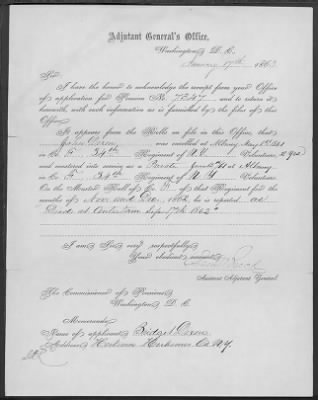 Adjutant General's Office,
Washington, D. C.
January 17th, 1863
Sir:
I have the honor to acknowledge the receipt from your Office
of application for Pension No. 7247, and to return it
herewith, with such information as is furnished by the files of this
Office.
It appears from the Rolls on file in this Office, that
was enrolled at Albany May 1st 1861
in Co. F, 34th Regiment of N.Y. Volunteers, 2 Years
and mustered into service as a at Albany
in Co. F 34th Regiment of N.Y. Volunteers
On the Muster Roll of Co. F of that Regiment for the
months of Nov. and Dec., 1862, he is reported as
Dead at Antietam Sep. 17th 1862
I am, Sir, very respectfully,
Your obedient servant,
Assistant Adjutant General.
The Commissioner of Pensions
Washington, D. C.
Memoranda:
Name of applicant, Bridget
Address, Herkimer Co NY